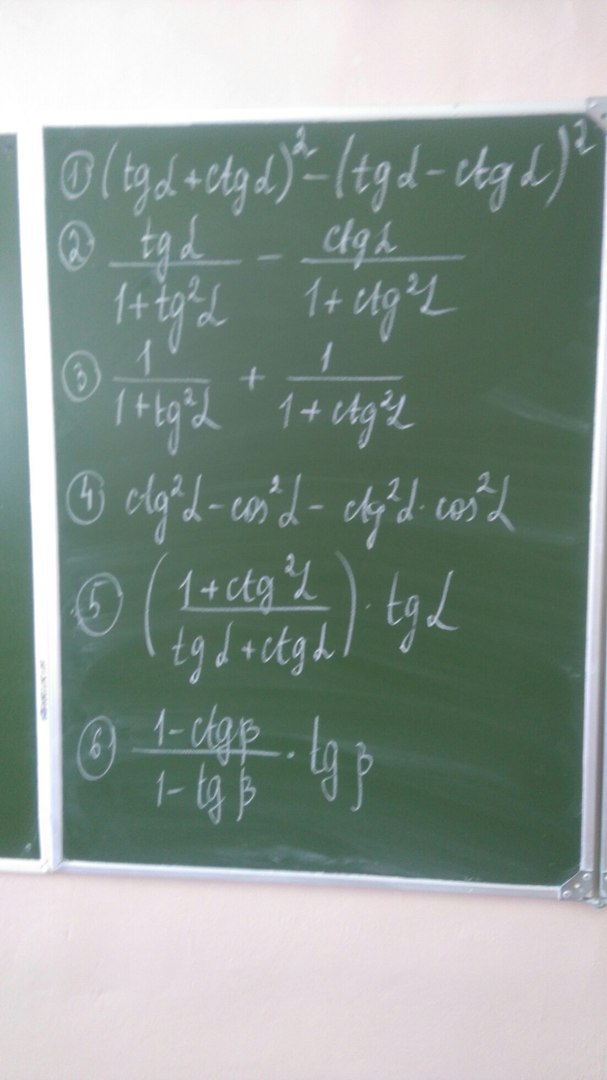 ① (tgα+ctgα)² - (tgα - ctgα)²
② tgα / (1+tg²α) - ctgα / (1+ctg²α)
③ 1 / (1+tg²α) + 1 / (1+ctg²α)
④ ctg²α - cos²α - ctg²α · cos²α
⑤ ((1+ctg²α) / (tgα+ctgα)) · tgα
⑥ (1-ctgβ) / (1-tgβ) · tgβ